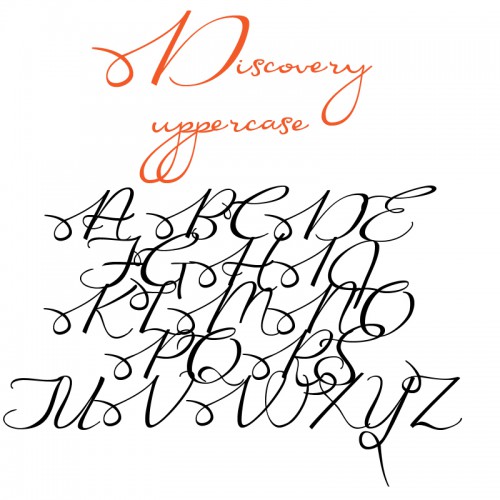 Discovery
uppercase
A B C D E
F G H I J
K L M N O
P Q R S
T U V W X Y Z